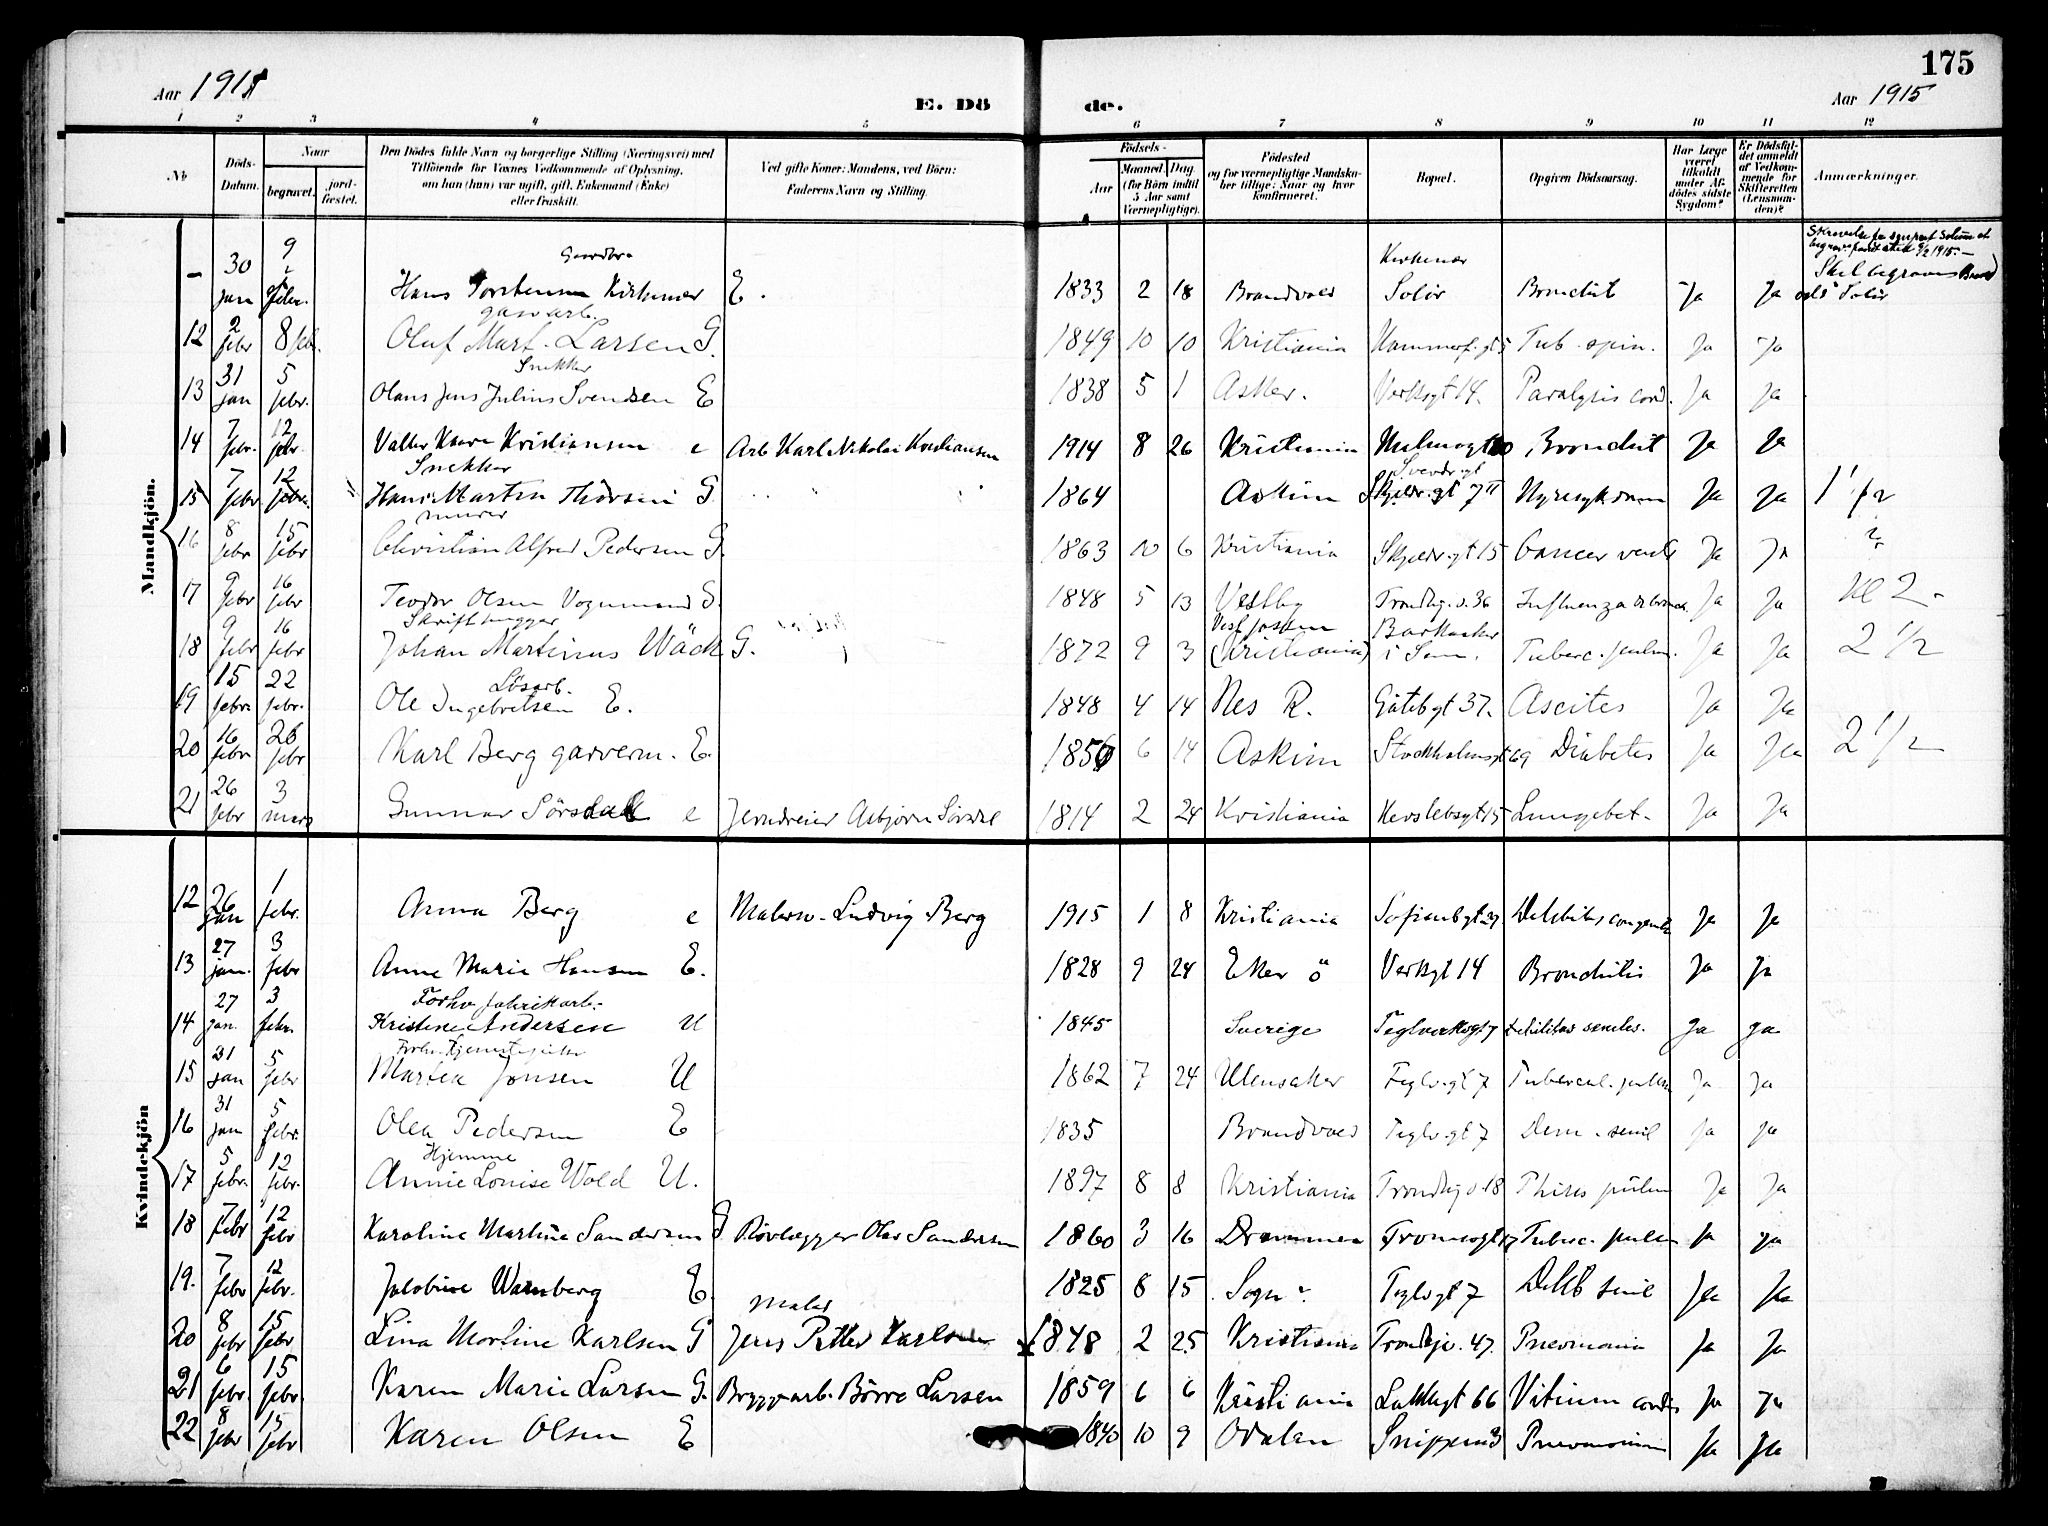 175
Aar 1915
E. Dö
de.
Aar 1915
1 2 3 4 5 6 7 8 9 10 11 12
No
Döds-Datum.
Naar
begravet.
jord-fæstet.
Den Dödes fulde Navn og borgerlige Stilling (Næringsvei) med
Tilföiende for Voxnes Vedkommende af Oplysning,
om han (hun) var ugift, gift, Enkemand (Enke)
eller fraskilt.
Ved gifte Koner: Mandens, ved Börn:
Faderens Navn og Stilling.
Födsels-
Aar
Maaned. Dag.
(for Börn indtil
5 Aar samt
Værnepligtige).
Födested
og for værnepligtige Mandska-
ber tillige: Naar og hvor
konfirmeret.
Bopæl.
Opgiven Dödsaarsag.
Har Læge
været
tilkaldt
under Af-
dödes sidste
Sygdom?
Er Dödsfal-
det anmeldt
af Vedkom-
mende for
Skifteretten
(Lensman-
den)?
Anmærkninger.
Mandkjön.
– 30 jan 9 febr. Hans Torstensen Kirkenær E. 1833 2 18 Brandvold Kirkenær Solör Bronchit Ja Ja
12 2 febr 8 febr. garvarb. Oluf Mart. Larsen G. 1849 10 10 Kristiania Hammerf.gt 5 Tub. spin. Ja Ja
13 31 jan 5 febr. Snekker Olaus Jens Julius Svendsen E 1838 5 1 Asker. Verksgt 14. Paralysis cord. Ja Ja
14 7 febr. 12 febr Valter Kaare Kristiansen e Arb Karl Nikolai Kristiansen 1914 8 26 Kristiania Bronchit Ja Ja
15 7 febr 12 febr. Snekker Hans Martin Thorsen G 1864 Askim 7 II Nyresykdom Ja Ja 1 1/2
16 8 febr 15 febr murer Christian Alfred Pedersen G. 1863 10 6 Kristiania Skjeldr.gt 15 Cancer ventr Ja Ja 2
17 9 febr 16 febr Teodor Olsen Vognmand G. 1848 5 13 Vestby Trondhj.v. 36 Influenza Ja Ja kl 2 -
18 9 febr 16 febr Skrifthugger Johan Martinus Wäck G. 1872 9 3 (Kristiania) i Sem. Tuberc. pulm. Ja Ja 2 1/2
19 15 febr. 22 febr. Lösarb. Ole Ingebretsen E. 1848 4 14 Nes R. Götebgt 37. Ascites Ja Ja
20 16 febr. 26 febr Karl Berg garverm. E. 1856 6 14 Askim Stockholmsgt 69 Diabetes Ja Ja 2 1/2
21 26 febr 3 mars Gunnar Sörsdal e Jerndreier Asbjørn Sörsdal 1814 2 24 Kristiania Herslebsgt 15 Lungebet. Ja Ja
Kvindekjön
12 26 jan 1 febr. Anna Berg e Malersv. Ludvig Berg 1915 1 8 Kristiania Sofienbgt 27. Debilitas congenita Ja Ja
13 27 jan. 3 febr Anne Marie Hansen E. 1828 9 24 Eker ö Verksgt 14 Bronchitis Ja Ja
14 27 jan. 3 febr. Forhv fabrikarb. Kristine Andersen U 1845 Sverige Teglverksgt 7 debilitas senilis. Ja Ja
15 31 jan 5 febr Forhv. tjenestepike Martea Jonsen U 1862 7 24 Ulensaker Teglv.gt 7 Tubercul. pulm Ja Ja
16 31 jan 5 febr. Olea Pedersen E 1835 Brandvold Teglv.gt 7 Dem. senil Ja Ja
17 5 febr. 12 febr. Hjemme Annie Louise Wold U. 1897 8 8 Kristiania Trondhj.v. 18 Phtisis pulm Ja Ja
18 7 febr 12 febr Karoline Martine Sandersen G Rörlægger Olav Sandersen 1860 3 16 Drammen Tromsogt 17 Tuberc. pulm Ja Ja
19. 7 febr 12 febr. Jacobine Warnberg E. 1825 8 15 Sogn Teglvgt 7 Debil senil Ja Ja
20 8 febr 15 febr Lina Martine Karlsen G Maler Jens Petter Karlsen 1848 2 25 Kristiania Trondhjv. 47. Pneumonia Ja Ja
21 6 febr. 15 febr. Karen Marie Larsen G. Bryggarb. Börre Larsen 1859 6 6 Kristiania Lakkegt 66 Vitium cordis Ja Ja
22 8 febr 15 febr Karen Olsen E 1840 10 9 Odalen Snippen 3 Pneumonia Ja Ja